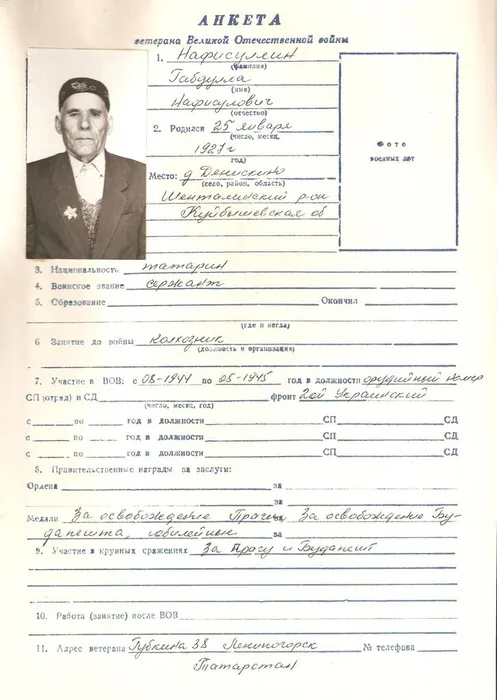 АНКЕТА
ветерана Великой Отечественной войны
1. Нафисуллин
(фамилия)
Габдулла
(имя)
Нафисулович
(отчество)
2. Родился 25 января
(число, месяц,
1927 г
год)
Место: д Денискино
(село, район, область)
Шенталинский р-он
Куйбышевская об
Фото
военных лет
3. Национальность татарин
4. Воинское звание сержант
5. Образование Окончил
(где и когда)
6 Занятие до войны колхозник
(должность и организация)
7. Участие в ВОВ: с 08-1944 по 05-1945 год в должности орудийный номер
СП (отряд) и СД фронт 2ой Украинский
(число, месяц, год)
с по год в должности СП СД
с по год в должности СП СД
с по год в должности СП СД
8. Правительственные награды за заслуги:
Ордена за
за
Медали За освобождение Праги, за За освобождение Бу-
дапешта, юбилейные за
9. Участие в крупных сражениях За Прагу и Будапешт
10. Работа (занятие) после ВОВ
11. Адрес ветерана Губкина 38 Лениногорск № телефона
Татарстан